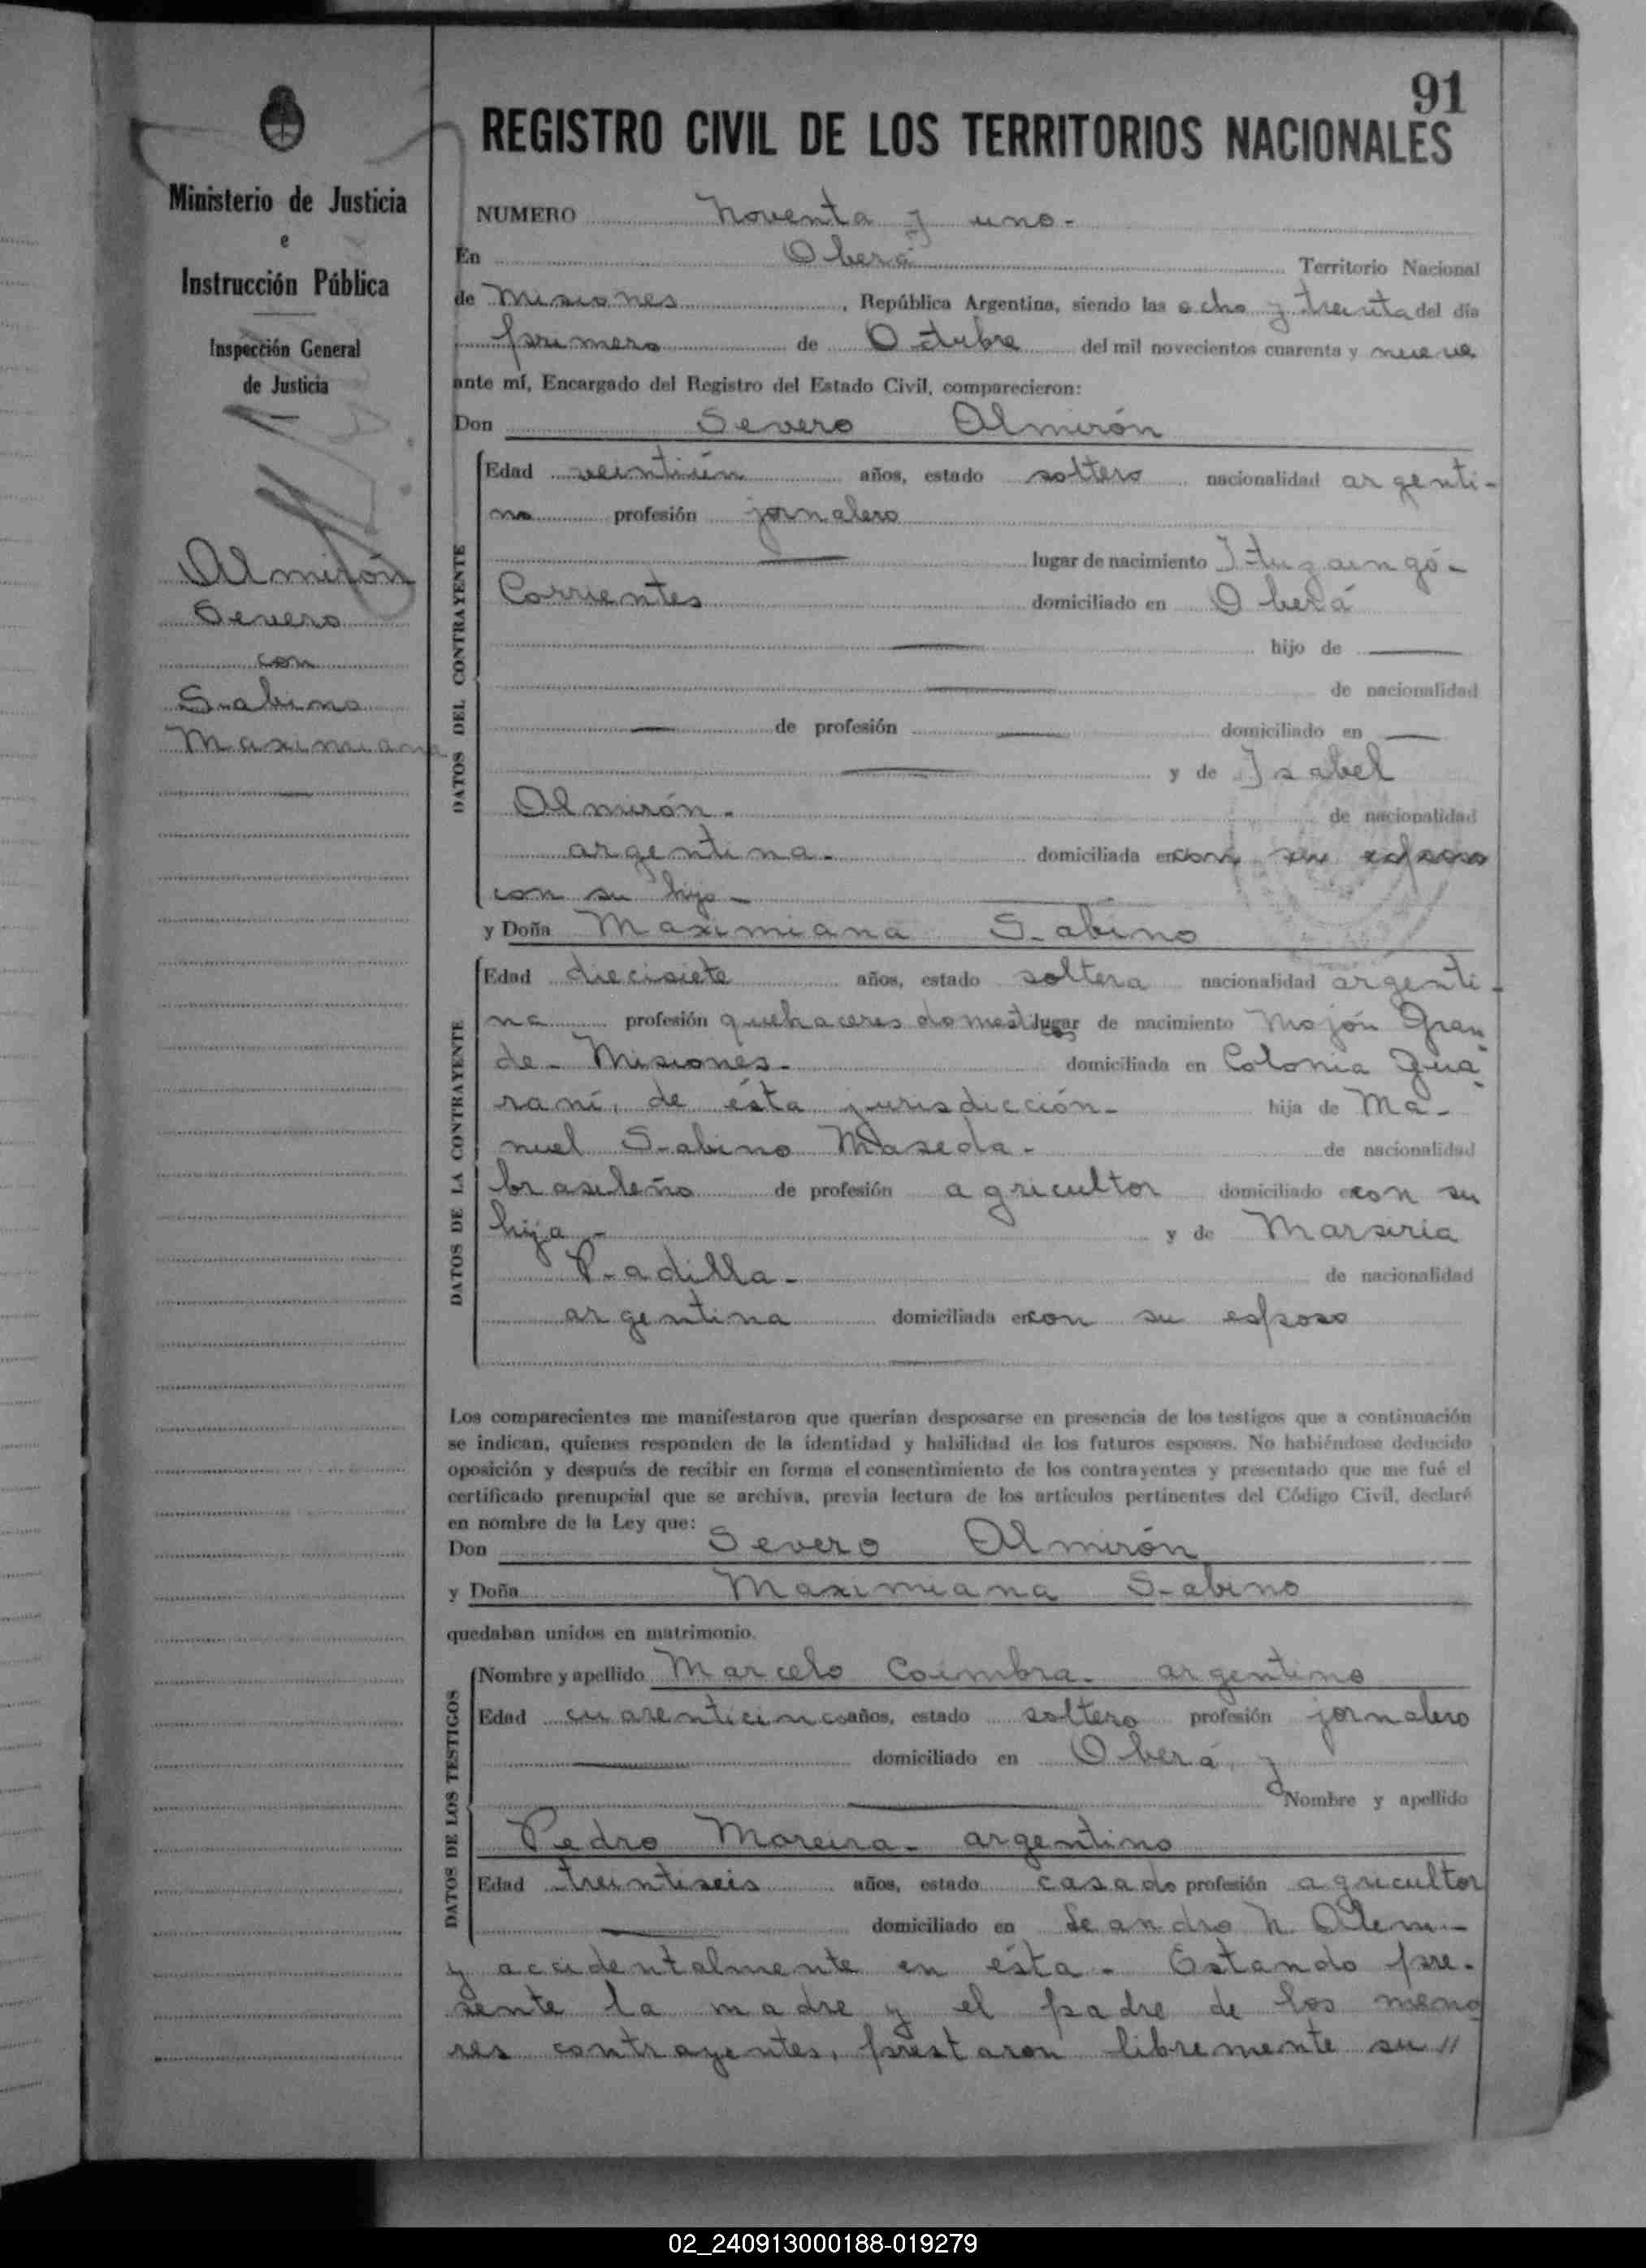 91
REGISTRO CIVIL DE LOS TERRITORIOS NACIONALES
Ministerio de Justicia
e
Instrucción Pública
Inspección General
de Justicia
Almirón
Severo
con
Sabino
Maximiana
NUMERO Noventa y uno-
En Oberá Territorio Nacional
de Misiones, República Argentina, siendo las ocho y treinta del día
primero de Octubre del mil novecientos cuarenta y nueve
ante mí, Encargado del Registro del Estado Civil, comparecieron:
Don Severo Almirón
DATOS DEL CONTRAYENTE
Edad veintiún años, estado soltero nacionalidad argenti-
no profesión jornalero
lugar de nacimiento Ituzaingó-
Corrientes domiciliado en Oberá
hijo de
de nacionalidad
de profesión domiciliado en
y de Isabel
Almirón- de nacionalidad
argentina- domiciliada en con su esposo
con su hijo-
y Doña Maximiana Sabino
DATOS DE LA CONTRAYENTE
Edad diecisiete años, estado soltera nacionalidad argenti-
na profesión quehaceres domesticos lugar de nacimiento Mojón Gran
de- Misiones- domiciliada en Colonia Gua-
raní, de ésta jurisdicción- hija de Ma-
nuel Sabino Maseda- de nacionalidad
brasileño de profesión agricultor domiciliado en con su
hija- y de Marsiria
Padilla- de nacionalidad
argentina domiciliada en con su esposo
Los comparecientes me manifestaron que querían desposarse en presencia de los testigos que a continuación
se indican, quienes responden de la identidad y habilidad de los futuros esposos. No habiéndose deducido
oposición y después de recibir en forma el consentimiento de los contrayentes y presentado que me fué el
certificado prenupcial que se archiva, previa lectura de los artículos pertinentes del Código Civil, declaré
en nombre de la Ley que:
Don Severo Almirón
y Doña Maximiana Sabino
quedaban unidos en matrimonio.
DATOS DE LOS TESTIGOS
Nombre y apellido Marcelo Coimbra- argentino
Edad cuarenticinco años, estado soltero profesión jornalero
domiciliado en Oberá, y
Nombre y apellido
Pedro Moreira- argentino
Edad treintiseis años, estado casado profesión agricultor
domiciliado en Leandro N. Alem-
y accidentalmente en ésta- Estando pre-
sente la madre y el padre de los meno
res contrayentes, prestaron libremente su //
02_240913000188-019279